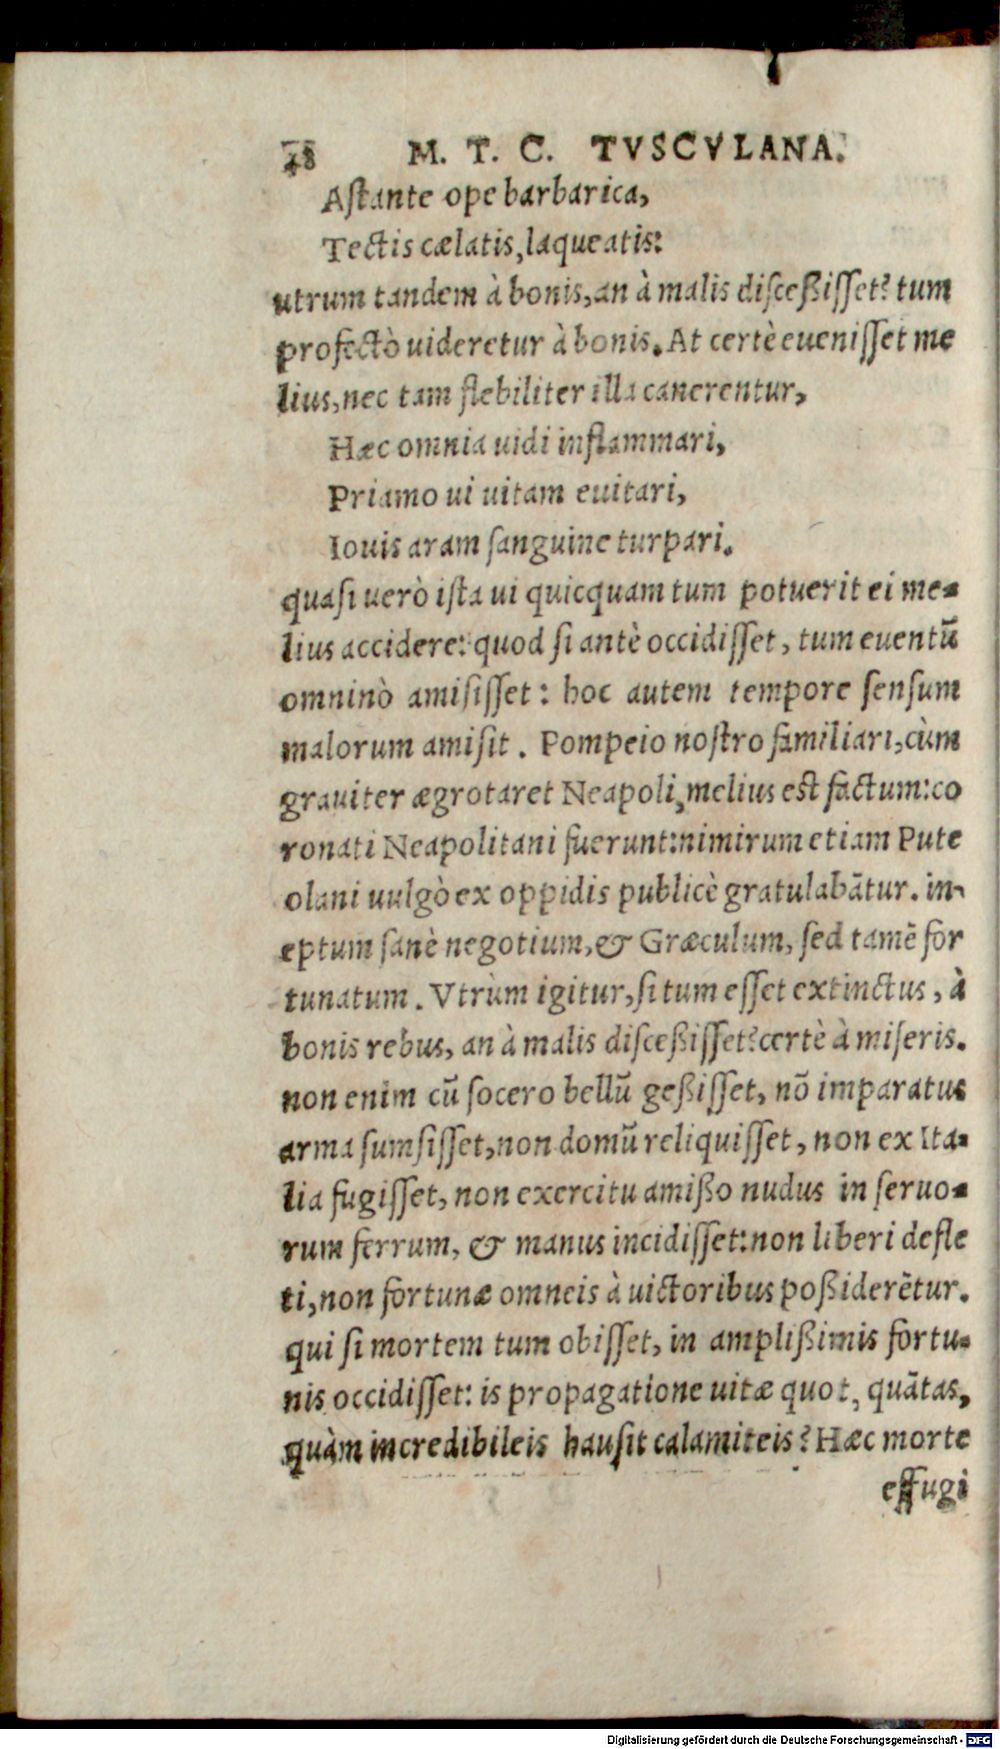 48 M. T. C. TVSCVLANA.
Aſtante ope barbarica,
Tectis cælatis, laqueatis:
utrum tandem à bonis, an à malis diſceßiſſet? tum
profectò uideretur à bonis. At certè eueniſſet me
lius, nec tam flebiliter illa canerentur,
Hæc omnia uidi inflammari,
Priamo ui uitam euitari,
Iouis aram ſanguine turpari.
quaſi uerò iſta ui quicquam tum potuerit ei me-
lius accidere: quod ſi antè occidiſſet, tum euentũ
omninò amiſiſſet: hoc autem tempore ſenſum
malorum amiſit. Pompeio noſtro familiari, cùm
grauiter ægrotaret Neapoli, melius eſt factum: co
ronati Neapolitani fuerunt: nimirum etiam Pute
olani uulgò ex oppidis publicè gratulabãtur. in-
eptum ſanè negotium, & Græculum, ſed tamẽ for
tunatum. Vtrùm igitur, ſi tum eſſet extinctus, à
bonis rebus, an à malis diſceßiſſet? certè à miſeris.
non enim cũ ſocero bellũ geßiſſet, nõ imparatus
arma ſumſiſſet, non domũ reliquiſſet, non ex Ita-
lia fugiſſet, non exercitu amißo nudus in ſeruo-
rum ferrum, & manus incidiſſet: non liberi defle
ti, non fortunæ omneis à uictoribus poßiderẽtur.
qui ſi mortem tum obiſſet, in amplißimis fortu-
nis occidiſſet: is propagatione uitæ quot, quãtas,
quàm incredibileis hauſit calamiteis? Hæc morte
effugi
Digitalisierung gefördert durch die Deutsche Forschungsgemeinschaft - DFG